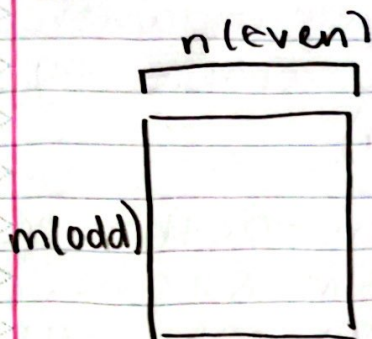 n(even)
m(odd)